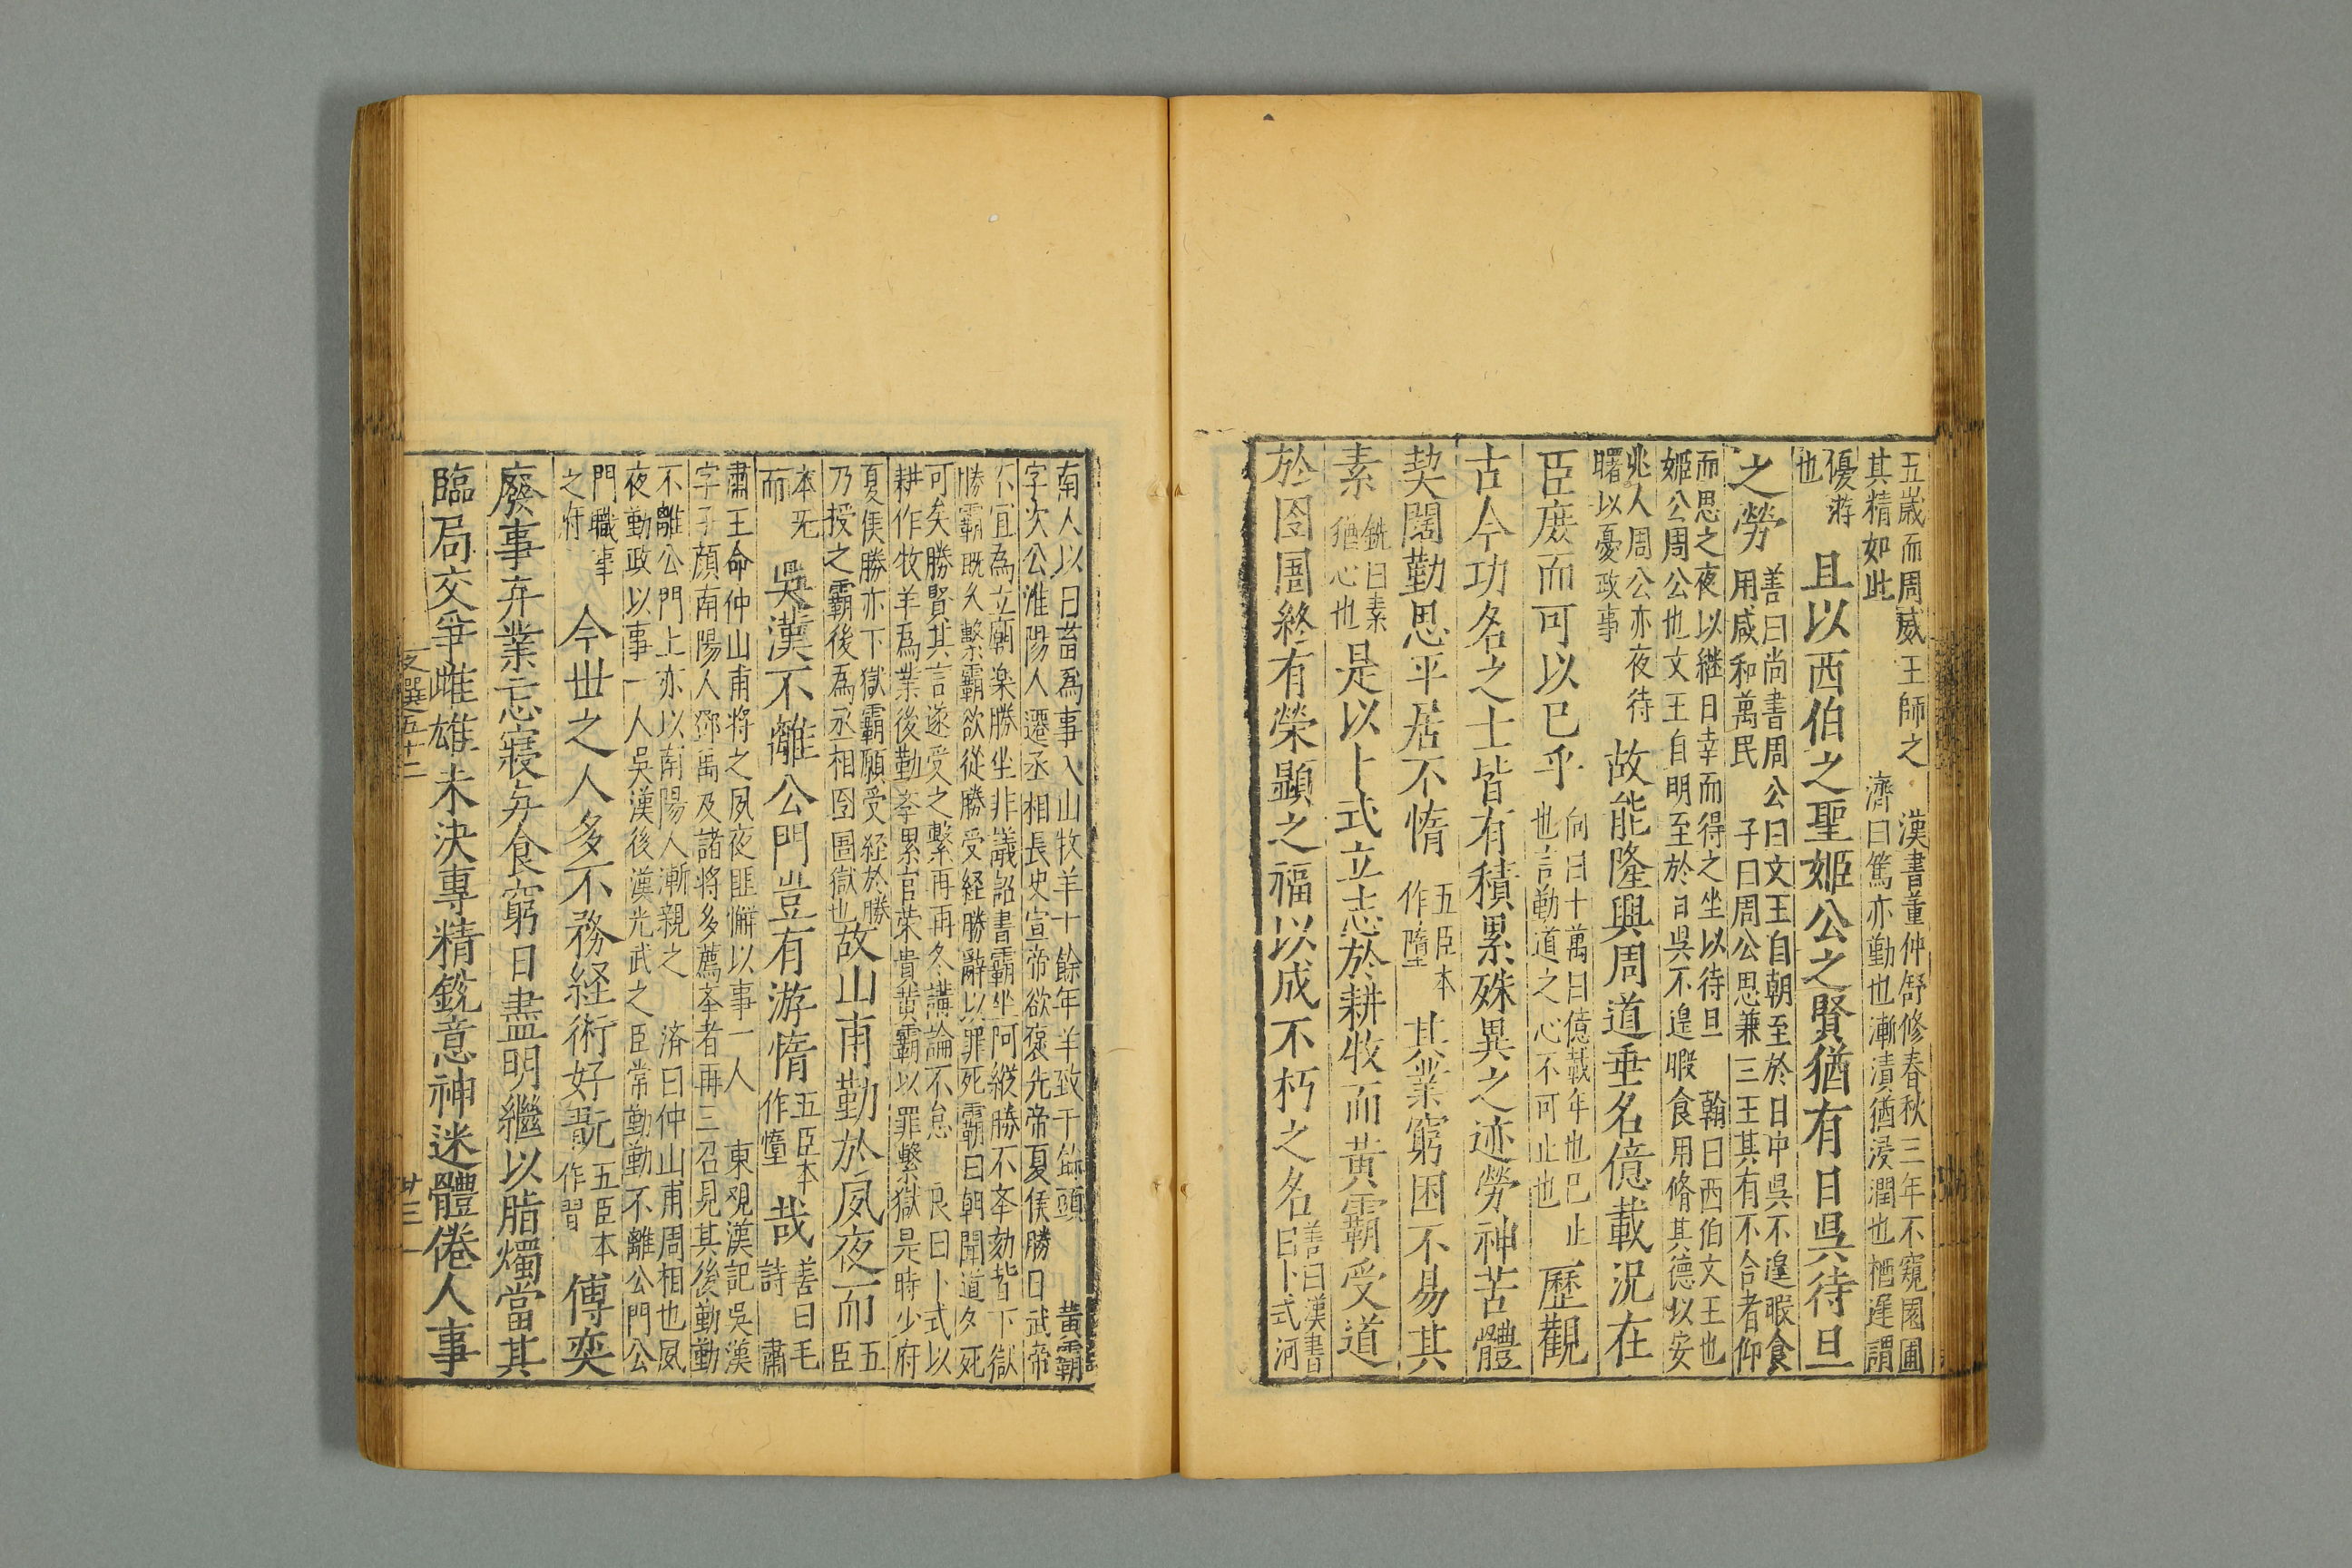 五歲而周威王師之　漢書董仲舒修春秋三年不窺園圃
其精如此　濟曰篤亦勤也漸漬猶浸潤也棲遲謂
優游
也
且以西伯之聖姬公之賢猶有日昃待旦
之勞
善曰尚書周公曰文王自朝至於日中昃不遑暇食
用咸和萬民　子曰周公思兼三王其有不合者仰
而思之夜以継日幸而得之坐以待旦　翰曰西伯文王也
姬公周公也文王自明至於日昃不遑暇食用脩其德以安
兆人周公亦夜待
曙以憂政事
故能隆興周道垂名億載況在
臣庶而可以已乎
向曰十萬曰億載年也已止
也言勤道之心不可止也
歷觀
古今功名之士皆有積累殊異之迹勞神苦體
契闊勤思平居不惰
五臣本
作墮
其業窮困不易其
素
銑曰素
猶心也
是以卜式立志於耕牧而黃霸受道
於囹圄終有榮顯之福以成不朽之名
善曰漢書
曰卜式河
南人以田畜爲事入山牧羊十餘年羊致千餘頭　黃霸
字次公淮陽人遷丞相長史宣帝欲襃先帝夏侯勝曰武帝
不宜為立廟楽勝坐非議詔書霸坐阿縱勝不奉劾皆下獄
勝霸既久繫霸欲從勝受経勝辭以罪死霸曰朝聞道夕死
可矣勝賢其言遂受之繫再再冬講論不怠　良曰卜式以
耕作牧羊爲業後勤孝累官荣貴黃霸以罪繫獄是時少府
夏侯勝亦下獄霸願受経於勝
乃授之霸後為丞相囹圄獄也
故山甫勤於夙夜而
五
臣
本无
而
吳漢不離公門豈有游惰
五臣本
作墮
哉
善曰毛
詩　肅
肅王命仲山甫將之夙夜匪懈以事一人　東观漢記吳漢
字子顏南陽人鄧禹及諸将多薦奉者再三召見其後勤勤
不離公門上亦以南陽人漸親之　済曰仲山甫周相也夙
夜勤政以事一人吳漢後漢光武之臣常勤勤不離公門公
門職事
之府
今世之人多不務経術好翫
五臣本
作習
博奕
廢事弃業忘寢与食窮日盡明繼以脂燭當其
臨局交爭雌雄未決專精銳意神迷體倦人事
文選五十二
廿三